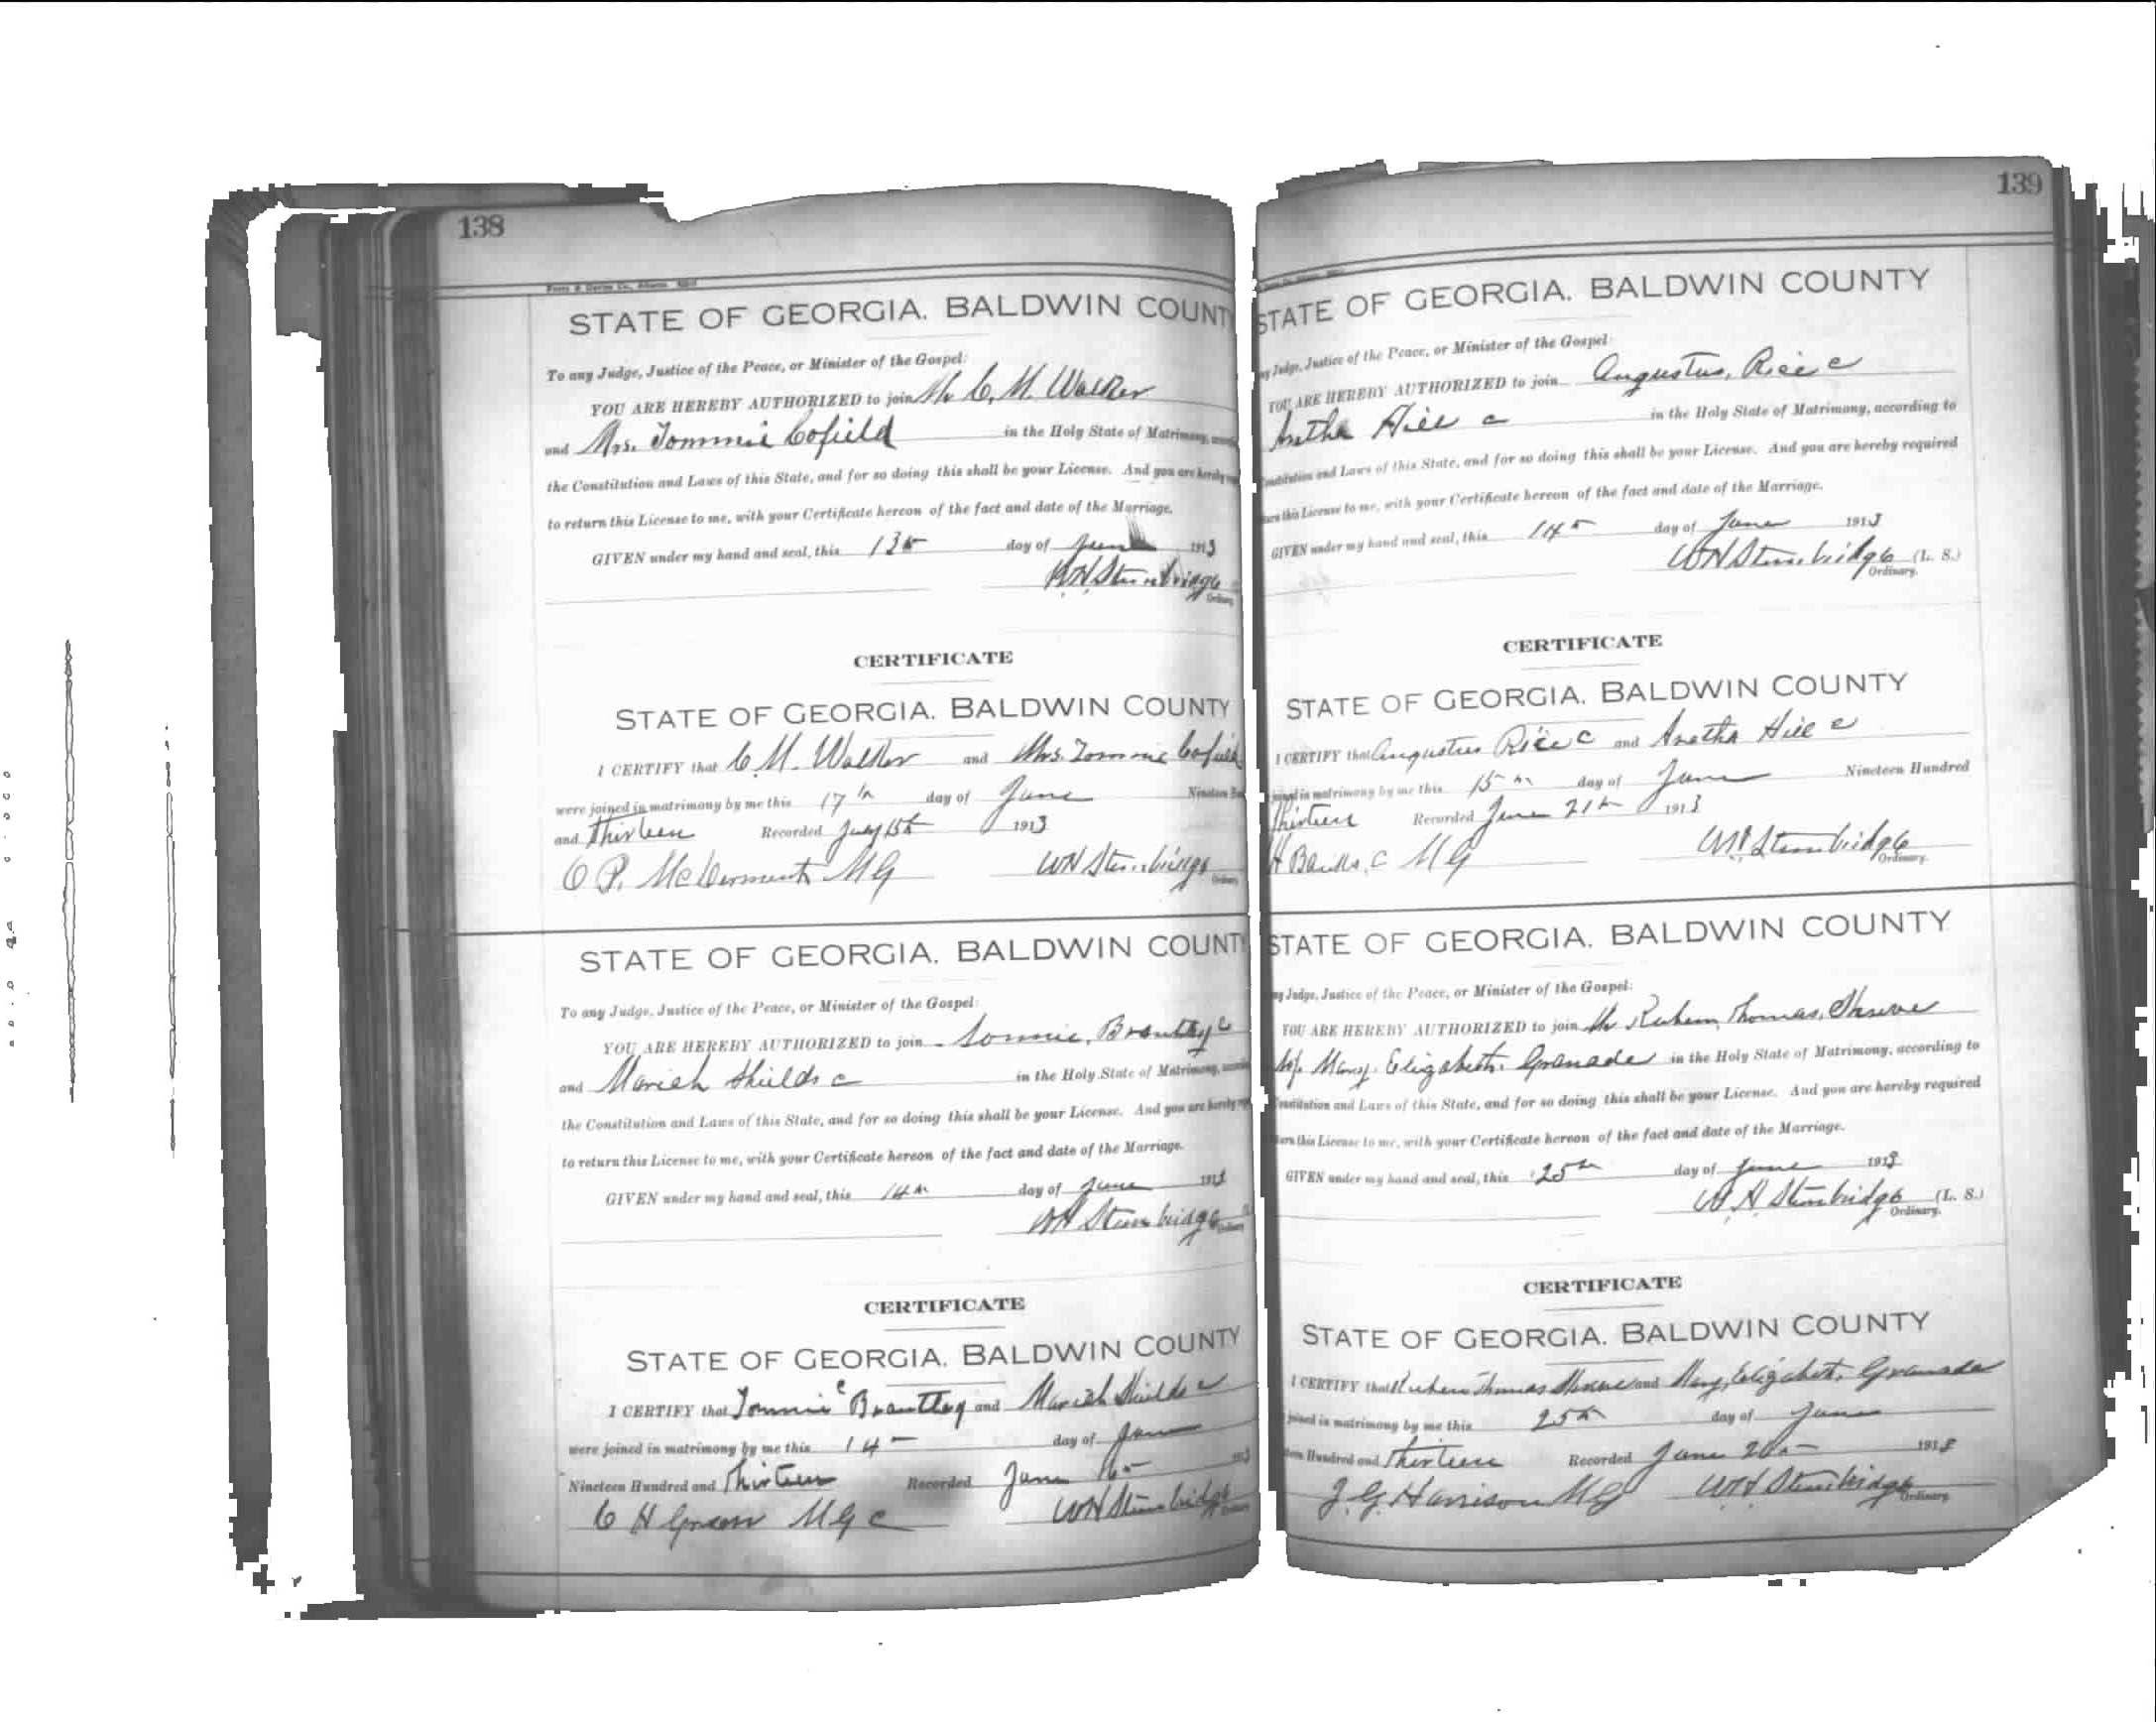 138
STATE OF GEORGIA. BALDWIN COUNT
To any Judge, Justice of the Peace, or Minister of the Gospel:
YOU ARE HEREBY AUTHORIZED to join Mr C. M. Walker
and Mrs. Tommie Cofield in the Holy State of Matrimony,
the Constitution and Laws of this State, and for so doing this shall be your License. And you are hereby
to return this License to me, with your Certificate hereon of the fact and date of the Marriage.
GIVEN under my hand and seal, this 13th day of June 1913
WH Stembridge
Ordinary
CERTIFICATE
STATE OF GEORGIA. BALDWIN COUNTY
I CERTIFY that C. M. Walker and Mrs. Tommie Cofield
were joined in matrimony by me this 17th day of June Nineteen
and Thirteen Recorded July 15th 1913
O P. McDerment MG WH Stembridge
Ordinary
STATE OF GEORGIA. BALDWIN COUNT
To any Judge, Justice of the Peace, or Minister of the Gospel:
YOU ARE HEREBY AUTHORIZED to join Brantley c
and Mariah Shields c in the Holy State of Matrimony,
the Constitution and Laws of this State, and for so doing this shall be your License. And you are hereby
to return this License to me, with your Certificate hereon of the fact and date of the Marriage.
GIVEN under my hand and seal, this 14th day of June 1913
WH Stembridge
Ordinary
CERTIFICATE
STATE OF GEORGIA. BALDWIN COUNTY
I CERTIFY that Tommie c Brantley and Mariah Shields c
were joined in matrimony by me this 14 day of June
Nineteen Hundred and Thirteen Recorded June 16 1913
C H Green M G c WH Stembridge
Ordinary
139
STATE OF GEORGIA. BALDWIN COUNTY
Judge, Justice of the Peace, or Minister of the Gospel:
YOU ARE HEREBY AUTHORIZED to join Augustus, Rice c
Aretha Hill c in the Holy State of Matrimony, according to
Constitution and Laws of this State, and for so doing this shall be your License. And you are hereby required
this License to me, with your Certificate hereon of the fact and date of the Marriage.
GIVEN under my hand and seal, this 14th day of June 1913
WH Stembridge (L. S.)
Ordinary.
CERTIFICATE
STATE OF GEORGIA. BALDWIN COUNTY
I CERTIFY that Augustus Rice c and Aretha Hill c
joined in matrimony by me this 15th day of June Nineteen Hundred
Thirteen Recorded June 21th 1913
H Banks, c MG WH Stembridge
Ordinary.
STATE OF GEORGIA. BALDWIN COUNTY
Judge, Justice of the Peace, or Minister of the Gospel:
YOU ARE HEREBY AUTHORIZED to join Mr Thomas,
Mary. Elizabeth. Granade in the Holy State of Matrimony, according to
Constitution and Laws of this State, and for so doing this shall be your License. And you are hereby required
this License to me, with your Certificate hereon of the fact and date of the Marriage.
GIVEN under my hand and seal, this 25th day of June 1913
W H Stembridge (L. S.)
Ordinary.
CERTIFICATE
STATE OF GEORGIA. BALDWIN COUNTY
I CERTIFY that Thomas and Mary, Elizabeth. Granade
joined in matrimony by me this 25th day of June
Hundred and Thirteen Recorded June 1913
J. G. Harrison MG WH Stembridge
Ordinary.